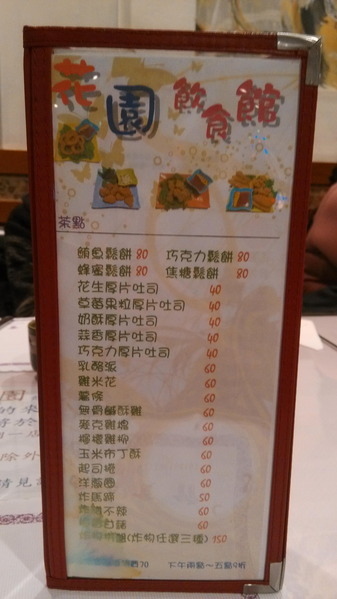 花園飲食館
茶點
鮪魚鬆餅 80 巧克力鬆餅 80
蜂蜜鬆餅 80 焦糖鬆餅 80
花生厚片吐司 40
草莓果粒厚片吐司 40
奶酥厚片吐司 40
蒜香厚片吐司 40
巧克力厚片吐司 40
乳酪派 60
雞米花 60
薯條 60
無骨鹹酥雞 60
麥克雞塊 60
檸檬雞柳 60
玉米布丁酥 60
起司捲 60
洋蔥圈 60
炸馬蹄 50
不辣 60
60
(炸物任選三種) 150
70 下午兩點~五點